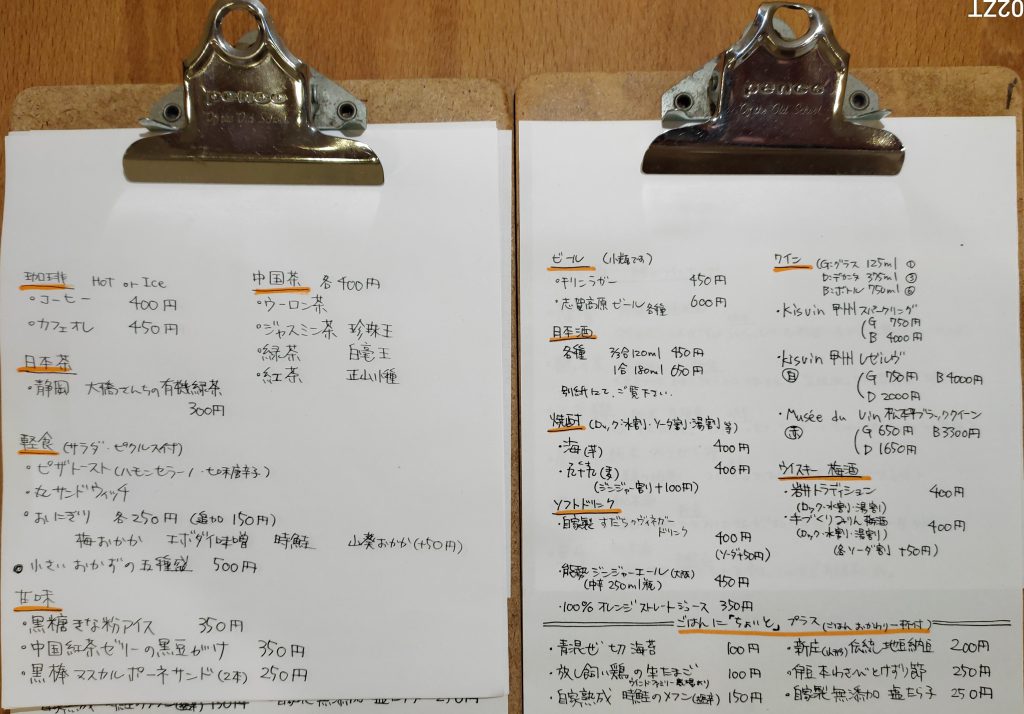 penco
珈琲 Hot or Ice
・コーヒー 400円
・カフェオレ 450円
日本茶
・静岡 大橋さんちの有機緑茶
300円
中国茶 各400円
・ウーロン茶
・ジャスミン茶 珍珠王
・緑茶 白毫王
・紅茶 正山小種
軽食 (サラダ・ピクルス付)
・ピザトースト(ハモンセラーノ・七味唐辛子)
・丸サンドウィッチ
・おにぎり 各250円 (追加150円)
梅おかか エボダイ味噌 時鮭 山葵おかか(+50円)
小さいおかずの五種盛 500円
甘味
・黒糖きな粉アイス 350円
・中国紅茶ゼリーの黒豆がけ 350円
・黒棒マスカルポーネサンド(2本) 250円
penco
ビール (小瓶です)
・キリンラガー 450円
・志賀高原ビール各種 600円
日本酒
各種 120ml 450円
1合180ml 650円
別紙にて、ご覧下さい。
焼酎 (ロック・水割・ソーダ割・湯割等)
・海(芋) 400円
(麦) 400円
(ジンジャー割り+100円)
ソフトドリンク
・自家製 すだちのヴィネガー
ドリンク
400円
(ソーダ+50円)
・能勢ジンジャーエール(大阪)
(中辛250ml瓶) 450円
・100%オレンジストレートジュース 350円
ワイン (G:グラス 125ml ①
D:デカンタ 375ml ③
B:ボトル 750ml ⑥
・Kisvin 甲州 スパークリング
G 750円
B 4000円
・Kisvin 甲州 レゼルヴ
白 G 750円 B 4000円
D 2000円
・Musée du Vin 松本平ブラッククイーン
赤 G 650円 B 3300円
D 1650円
ウイスキー 梅酒
・岩井トラディション 400円
(ロック・水割・湯割)
・手づくりみりん梅酒 400円
(ロック・水割・湯割)
(各ソーダ割 +50円)
ごはんに「ちょいと」プラス (ごはんおかわり一杯付)
・青混ぜ 切海苔 100円
・放し飼い鶏の生たまご 100円
・自家熟成 時鮭のメフン(塩辛) 150円
・新庄(山形)伝統 地豆納豆 200円
・伊豆 本わさびとけずり節 250円
・自家製 無添加 塩たら子 250円